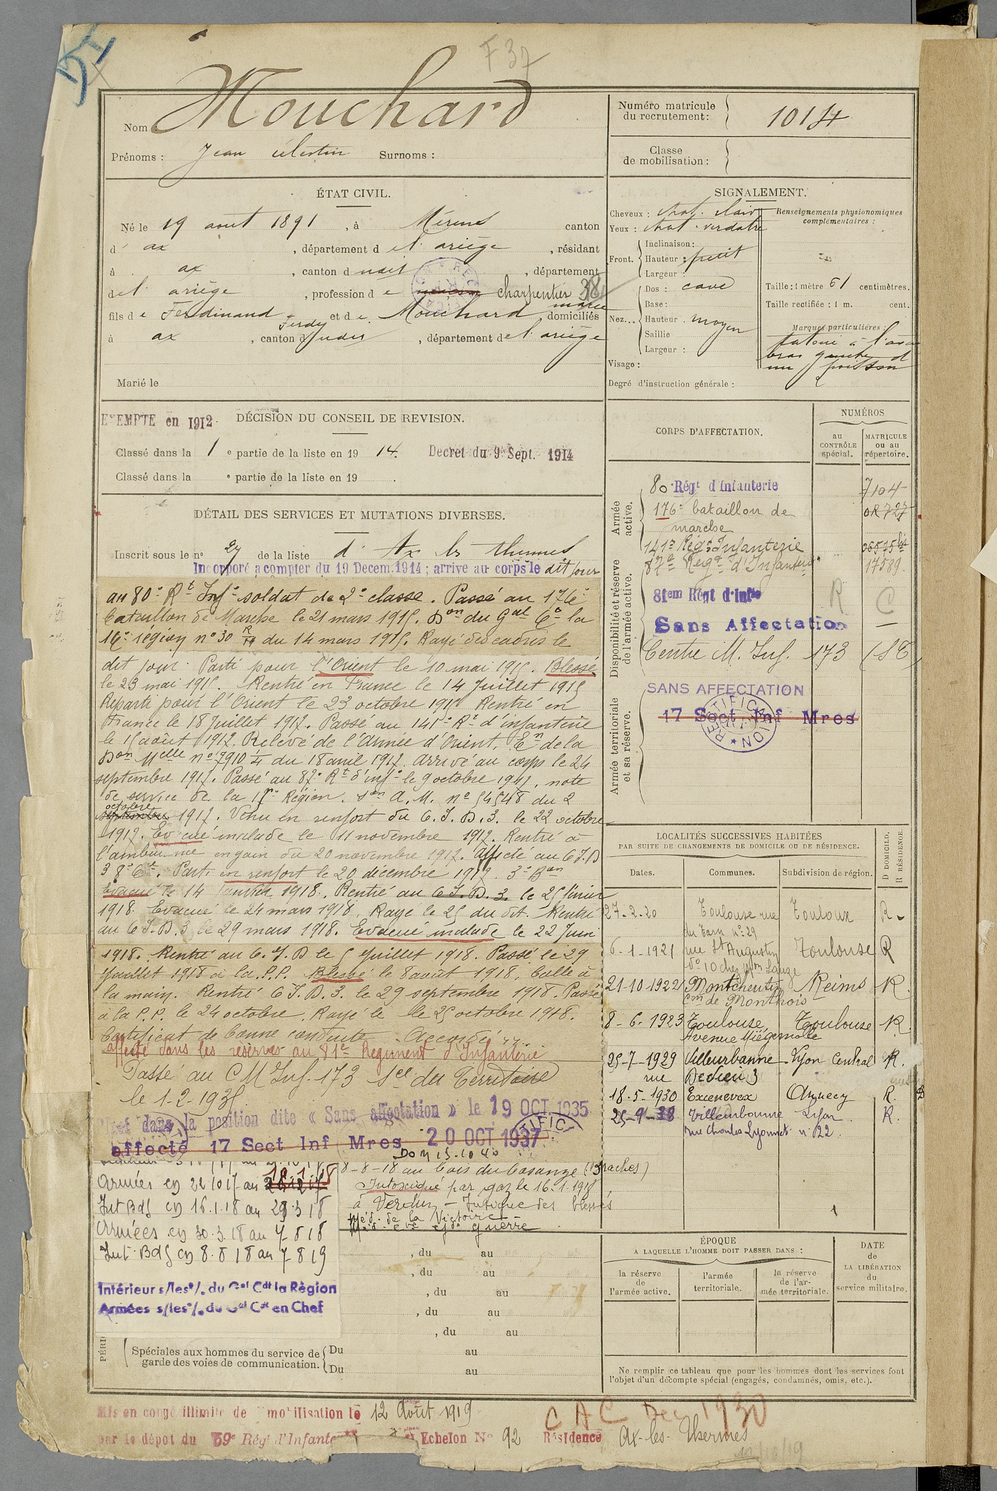 F 37
Nom Mouchard
Prénoms : Jean célestin Surnoms :
Numéro matricule du recrutement : 1014
Classe de mobilisation :
ÉTAT CIVIL.
Né le 19 aout 1891, à Mérens canton
d' ax, département de l'ariège, résidant
à ax, canton dudit, département
de l' ariège, profession de charpentier 38
fils de Ferdinand Ferdy et de Mouchard marie domiciliés
à ax, canton dudit, département de l'ariège
Marié le
SIGNALEMENT.
Cheveux : chat. clair
Yeux : chat. verdatre
Front. Inclinaison :
Hauteur : petit
Largeur :
Nez... Dos : cave
Base :
Hauteur : moyen
Saillie
Largeur :
Visage :
Degré d'instruction générale : 2
Renseignements physionomiques complémentaires :
Taille : 1 mètre 61 centimètres.
Taille rectifiée : 1 m. cent.
Marques particulières
tatoué à l'avant
bras gauche d'
un poisson
EXEMPTE en 1912. DÉCISION DU CONSEIL DE REVISION.
Classé dans la 1e partie de la liste en 1914. Decret du 9 Sept. 1914
Classé dans la e partie de la liste en 19 .
DÉTAIL DES SERVICES ET MUTATIONS DIVERSES.
Inscrit sous le n° 27 de la liste d'Ax les thermes
Incorporé a compter du 19 Decem. 1914 ; arrive au corps le dit jour
au 80e Rt Infie soldat de 2e classe. Passé au 176e
bataillon de Marche le 21 mars 1915. Don du Gal Ct la
16e région n° 30 R/H du 14 mars 1915. Rayé des cadres le
dit jour. Parti pour l'Orient le 10 mai 1915. Blessé
le 23 mai 1915. Rentré en France le 14 Juillet 1915
Reparti pour l'Orient le 23 octobre 1915 Rentré en
France le 18 Juillet 1917. Passé au 141e Rt d'infanterie
le 15 août 1917. Relevé de l'Armée d'Orient. En de la
Don Mlle n° 7910 1/4 du 18 avril 1917. arrivé au corps le 24
septembre 1917. Passé au 87e Rt d'infie le 9 octobre 1917, note
de service de la 17e Région. Son A. M. n° 54548 du 2
septembre octobre 1917. Venu en renfort du C. I. D. 3. le 22 octobre
1917. Evacué malade le 11 novembre 1917. Rentré à
en gain du 20 novembre 1917. Affecté au C I D
3 8e Cie. Parti en renfort le 20 decembre 1917. 3e Bon
Evacué le 14 Janvier 1918. Rentré au C. I. D. 3. le 25 fevrier
1918. Evacué le 24 mars 1918. Rayé le 25 du dit. Rentré
au C. I. D. 3. le 29 mars 1918. Evacué malade le 22 Juin
1918. Rentré au C. I. D le 5 Juillet 1918. Passé le 29
Juillet 1918 à la P.P. Blessé le 8 août 1918, balle à
la main. Rentré C. I. D. 3. le 29 septembre 1918. Passé
à la P. P. le 24 octobre. Rayé le 25 octobre 1918.
Certificat de bonne conduite Accordé
affecté dans les réserves au 81e Regiment d'Infanterie
Passé au C M Inf. 173 Sce du Territoire
le 1.2.1931
dans la position dite « Sans affectation » le 19 OCT. 1935
affecté 17 Sect Inf Mres 20 OCT 1937
Armées en 22 10 17 au 18.1.18
Int Bdf en 16.1.18 au 29.3.18
Armées en 30.3.18 au 7 8 18
Int. Bdf en 8.8.18 au 7 8 19
Intérieur s/les %. du Gal Cdt la Région
Armées s/les %. du Gal Cdt en Chef
8-8-18 au bois du
Intoxiqué par gaz le 16.1.1918
à Verdun - Insigne des blessés
Méd. de la Victoire
Méd. cve gde guerre
, du au
, du au
, du au
, du au
, du au
Spéciales aux hommes du service de garde des voies de communication. Du au
Du au
CORPS D'AFFECTATION.
NUMÉROS
AU CONTRÔLE spécial.
MATRICULE ou au répertoire.
Armée active.
80 Régt d'Infanterie 7104
176e bataillon de marche
141e Rég. Infanterie
Disponibilité et réserve de l'armée active.
87e Régt d'Infanterie 17589
81em Régt d'Infie R C
Sans Affectation
Centre M. Inf. 173
Armée territoriale et sa réserve.
SANS AFFECTATION
17 Sect Inf Mres
LOCALITÉS SUCCESSIVES HABITÉES
PAR SUITE DE CHANGEMENTS DE DOMICILE OU DE RÉSIDENCE.
Dates. Communes. Subdivision de région. D DOMICILE. R RÉSIDENCE.
27-2-20 Toulouse rue du Tarn n° 29 Toulouse R
6-1-1921 rue St Augustin n° 10 chez Mme Lauze Toulouse R
21-10-1922 Montcheutin con de Monthois Reims R.
8-6-1923 Toulouse, Avenue Toulouse R.
25-7-1929 Villeurbanne rue Dedieu 3 Lyon central R.
18.5.1930 Excenevex Annecy R.
25-9-38 Villeurbanne rue Charles Lyonnet n° 122 Lyon R.
ÉPOQUE
A LAQUELLE L'HOMME DOIT PASSER DANS :
la réserve de l'armée active.
l'armée territoriale.
la réserve de l'armée territoriale.
DATE de LA LIBÉRATION du service militaire.
Ne remplir ce tableau que pour les hommes dont les services font
l'objet d'un décompte spécial (engagés, condamnés, omis, etc.).
Mis en congé illimité de mobilisation le 12 Août 1919
par le dépot du 59e Régt d'Infanterie Echelon N° 92 Résidence Ax-les-Thermes
C A C Dec 1930